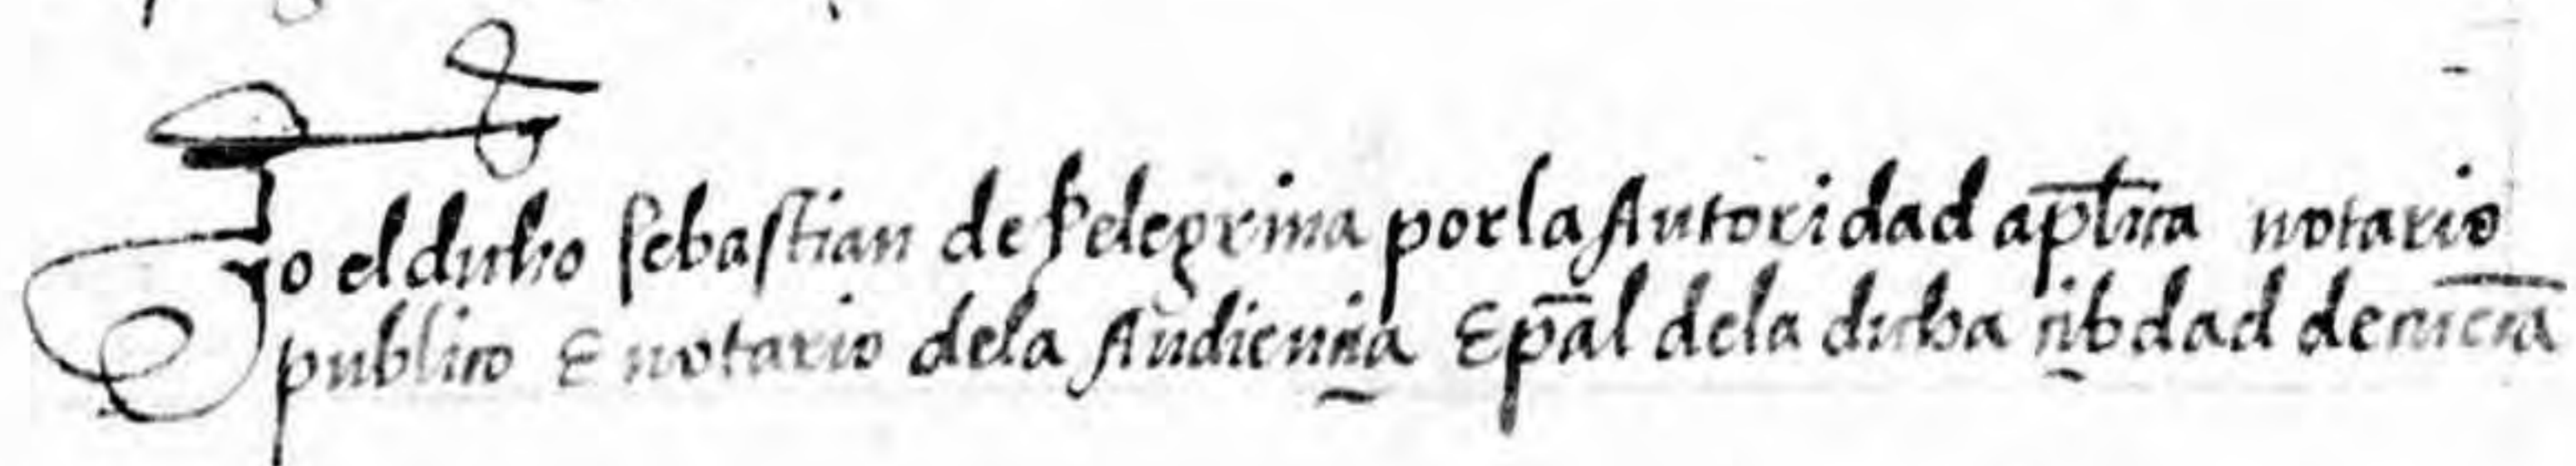 Yo el dicho sebastian de pelegrina por la Autoridad apl̅ica notario
publico E notario dela Audiençia Ep̅al dela dicha çibdad de